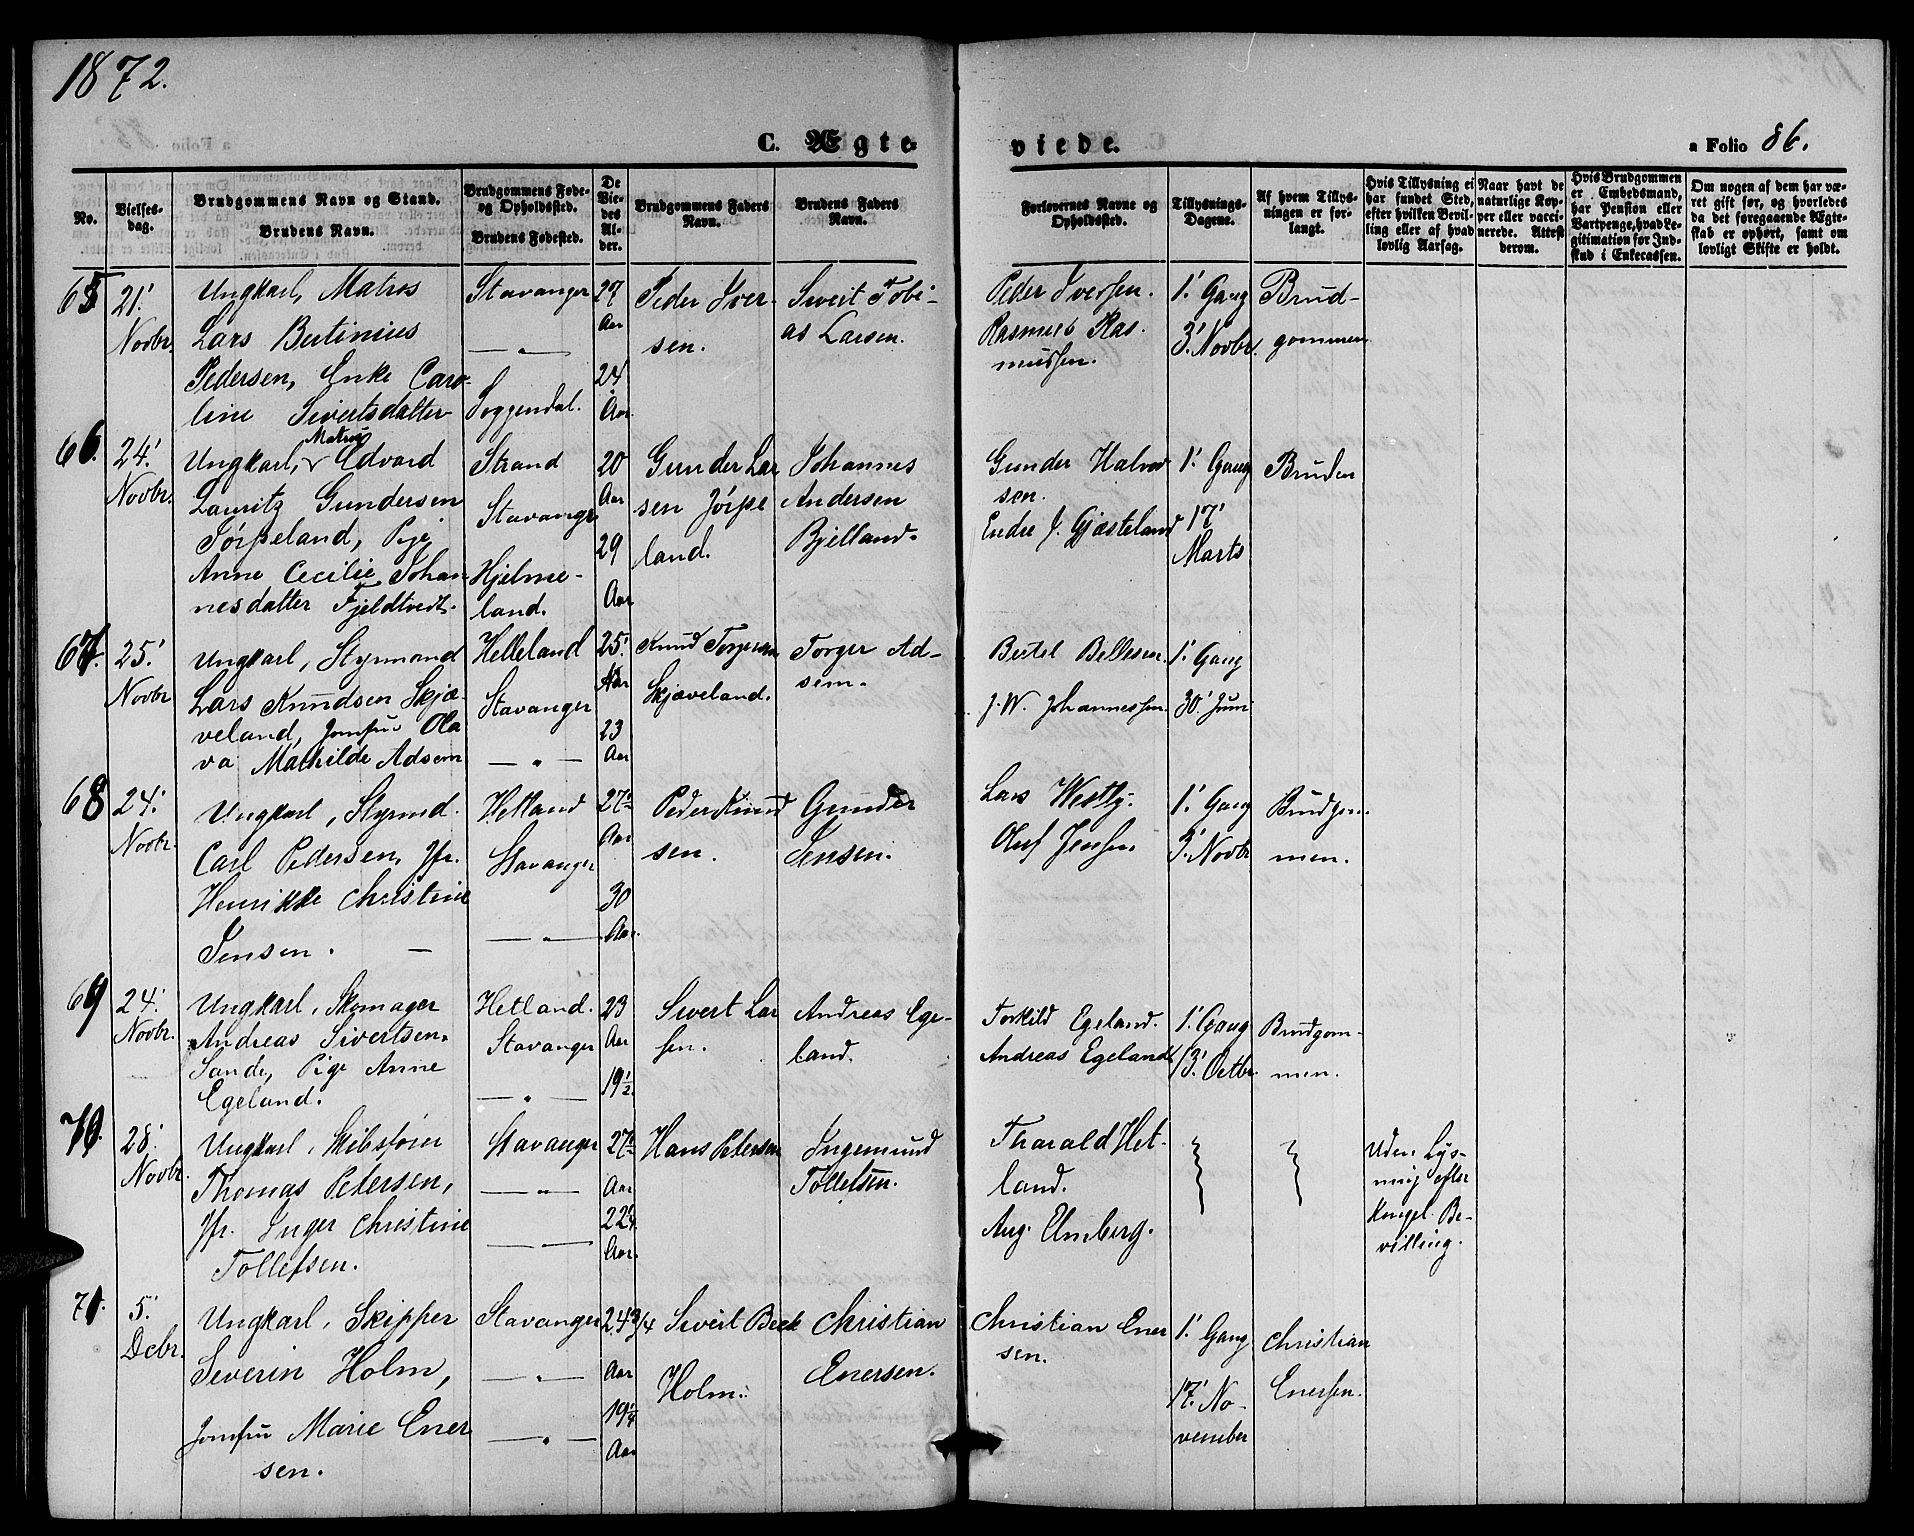 1872.
C. Ægte-
viede.
a Folio 86.
No.
Vielses-
dag.
Brudgommens Navn og Stand.
Brudens Navn.
Brudgommens Føde-
og Opholdssted.
Brudens Fødested.
De
Vie-
des
Al-
der.
Brudgommens Faders
Navn.
Brudens Faders
Navn.
Forlovernes Navne og
Opholdssted.
Tillysnings-
Dagene.
Af hvem Tillys-
ningen er for-
langt.
Hvis Tillysning ei
har fundet Sted,
efter hvilken Bevil-
ling eller af hvad
lovlig Aarsag.
Naar havt de
naturlige Kop-
per eller vacci-
nerede. Attest
derom.
Hvis Brudgommen
er Embedsmand,
har Pension eller
Vartpenge, hvad Le-
gitimation for Ind-
skud i Enkecassen.
Om nogen af dem har væ-
ret gift før, og hvorledes
da det foregaaende Ægte-
skab er ophørt, samt om
lovligt Skifte er holdt.
65
21'
Novbr.
Ungkarl, Matros
Lars Bertinius
Pedersen, Enke Caro-
line Sivertsdatter
Stavanger
— „ —
Soggendal.
27
Aar
24
Aar
Peder Iver-
sen.
Sivert Tobi-
as Larsen.
Peder Iversen.
Rasmus Ras-
mussen.
1' Gang
3' Novbr.
Brud-
gommen
66.
24'
Novbr.
Matros
Ungkarl, Edvard
Lauritz Gundersen
Jørpeland, Pige
Anne Cecilie Johan-
nesdatter Fjeldtvedt.
Strand
Stavanger
Hjelme-
land.
20
Aar
29
Aar
Gunder Lar
sen Jørpe
land.
Johannes
Andersen
Bjelland.
Gunder Halvor
sen.
Endre J. Gjæsteland
1' Gang
17'
Marts
Bruden
67.
25'
Novbr
Ungkarl, Styrmand
Lars Knudsen Skjæ-
veland, Jomfru Ola
va Mathilde Adsem
Helleland
Stavanger
— „ —
25'
Aar
23
Aar
Knud Torgersen
Skjæveland.
Torger Ad-
sem.
Bertel Bellesen.
J. W. Johannessen.
1' Gang
30' Juni
68
24'
Novbr.
Ungkarl, Styrmd.
Carl Pedersen, Jfr.
Henrikke Christine
Jensen. —
Hetland
Stavanger
— „ —
27½
Aar
30
Aar.
Peder Knud
sen.
Gunder
Jensen.
Lars Westly.
Oluf Jensen
1' Gang
3' Novbr
Brudgom-
men.
69
24'
Novbr.
Ungkarl, Skomager
Andreas Sivertsen
Sande, Pige Anne
Egeland.
Hetland.
Stavanger
— „ —
23
Aar
19½
Sivert Lar
sen.
Andreas Ege-
land.
Torkild Egeland.
Andreas Egeland
1' Gang
13' Octbr.
Brudgom-
men.
70.
28'
Novbr.
Ungkarl, Skibsfører
Thomas Petersen,
Jfr. Inger Christine
Tollefsen.
Stavanger
— „ —
— „ —
27½
Aar
22¼
Aar.
Hans Petersen
Ingemund
Tollefsen.
Tharald Het-
land.
Aug. Elmberg.
Uden Lys-
ning efter
Kongel. Be-
villing.
71.
5'
Debr.
Ungkarl, Skipper
Severin Holm,
Jomfru Marie Ener
sen.
Stavanger
— „ —
— „ —
24 3/4
Aar
19¼
Aar
Sivert Beck
Holm.
Christian
Enersen.
Christian Ener
sen.
1' Gang
17' No-
vember
Christian
Enersen.